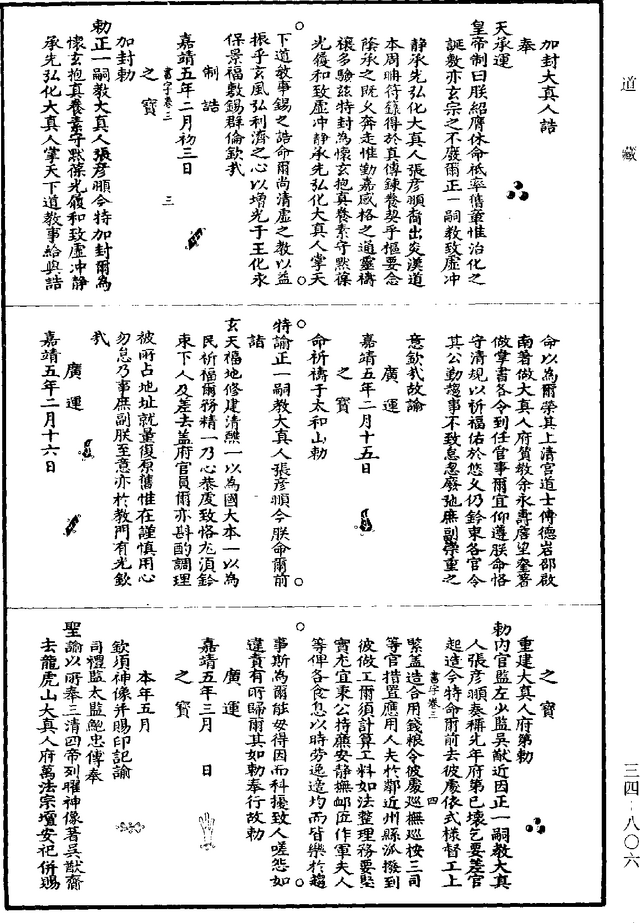 道藏
加封大真人誥
奉
天承運
皇帝制曰朕紹膺休命祗率舊章惟治化之
誕敷亦玄宗之不廢爾正一嗣教致虛冲
靜承先弘化大真人張彥頨裔出炎漢道
本周聃符籙得於真傳鍊養契乎樞要念
蔭承之既久奔走惟勤嘉感格之通靈禱
禳多驗兹特封為懷玄抱真養素守默葆
光履和致虛冲靜承先弘化大真人掌天
下道教事錫之誥命爾尚清虛之教以益
振乎玄風弘利濟之心以增光于王化永
保景福敷錫群倫欽哉
制誥
嘉靖五年二月初三日
書字卷三
三
之寶
加封勅
勅正一嗣教大真人張彥頨今特加封爾為
懷玄抱真養素守默葆光履和致虛冲靜
承先弘化大真人掌天下道教事給與誥
命以為爾榮其上清宫道士傅德岩邵啟
南著做大真人府贊教余永壽詹望奎著
做掌書各令到任官事爾宜仰遵朕命恪
守清規以祈福佑於悠久仍鈐束各官令
其公勤趨事不致怠忽廢弛庶副崇重之
意欽哉故諭
廣運
嘉靖五年二月十五日
之寶
命祈禱于太和山勅
特諭正一嗣教大真人張彥頨今朕命爾前
詣
玄天福地修建清醮一以為國大本一以為
民祈福爾務精一乃心恭虔致恪尤須鈐
束下人及差去蓋府官員爾亦斟酌調理
被所占地址就量復原舊惟在謹慎用心
勿怠乃事庶副朕至意亦於教門有光欽
哉
廣運
嘉靖五年二月十六日
之寶
重建大真人府第勅
勅内官監左少監吳猷近因正一嗣教大真
人張彥頨奏稱先年府第已壞乞要差官
起造今特命爾前去彼處依式樣督工上
書字卷三
四
緊蓋造合用錢粮令彼處巡撫巡按三司
等官措置應用人夫於鄰近州縣泒撥到
彼做工爾須計算工料如法整理務要堅
實尤宜秉公持廉安靜撫卹匠作軍夫人
等俾各食息以時勞逸造均而皆樂於趨
事斯為爾能毋得因而科擾致人嗟怨如
違責有所歸爾其如勅奉行故勅
廣運
嘉靖五年三月 日
之寶
本年五月
欽須神像并賜印記諭
司禮監太監鮑忠傳奉
聖諭以所奉三清四帝列曜神像著吳猷齎
去龍虎山大真人府萬法宗壇安祀併賜
三四-八〇六